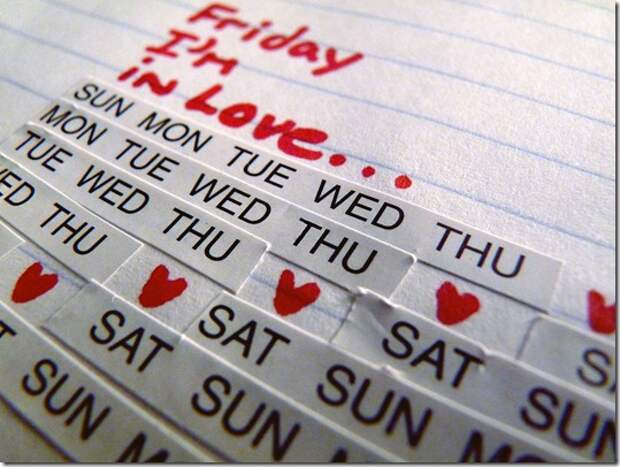 Friday
I'm
in Love...
SUN MON TUE WED THU
MON TUE WED THU
TUE WED THU
ED THU
SAT SUN
SAT SUN MO
SAT SUN
T SUN M